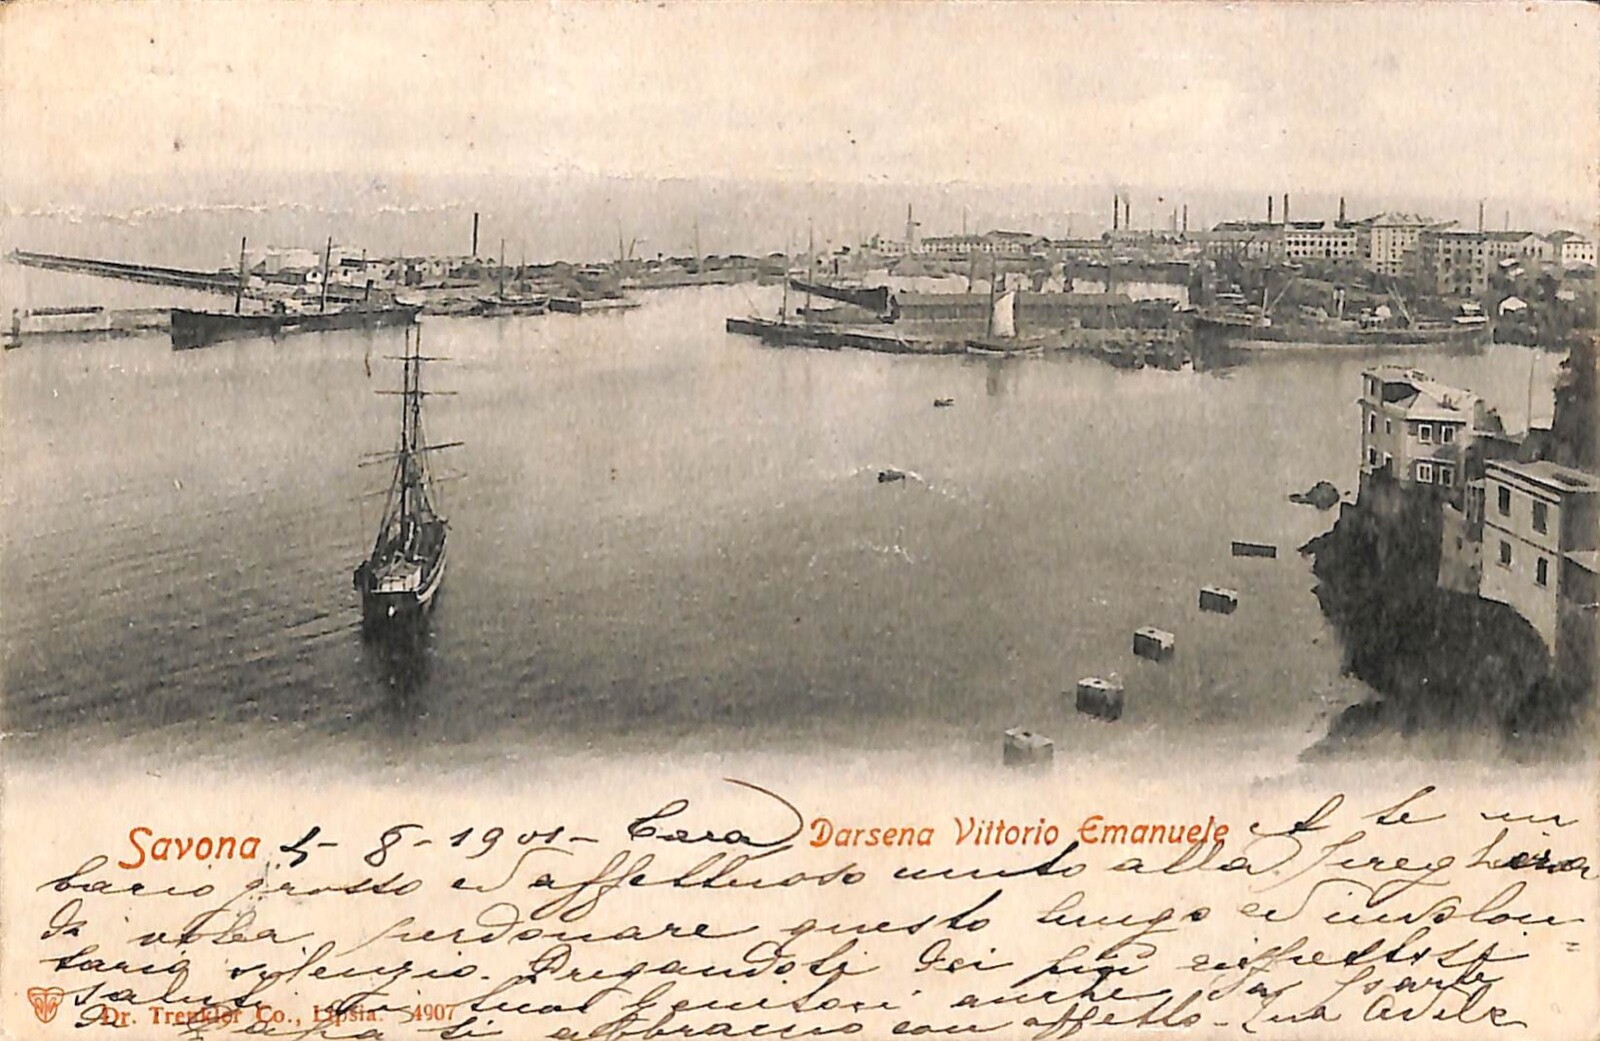 Savona 5-8-1901- Cara Darsena Vittorio Emanuele A te un
bacio grosso ed affettuoso unito alla preghiera
di voler perdonare questo lungo ed involon=
tario silenzio. Pregandoti dei più affettuosi
saluti ai tuoi genitori anche da parte
di Papà ti abbraccio con affetto - Tua Adele
Dr. Trenkler Co., Lipsia. 4907